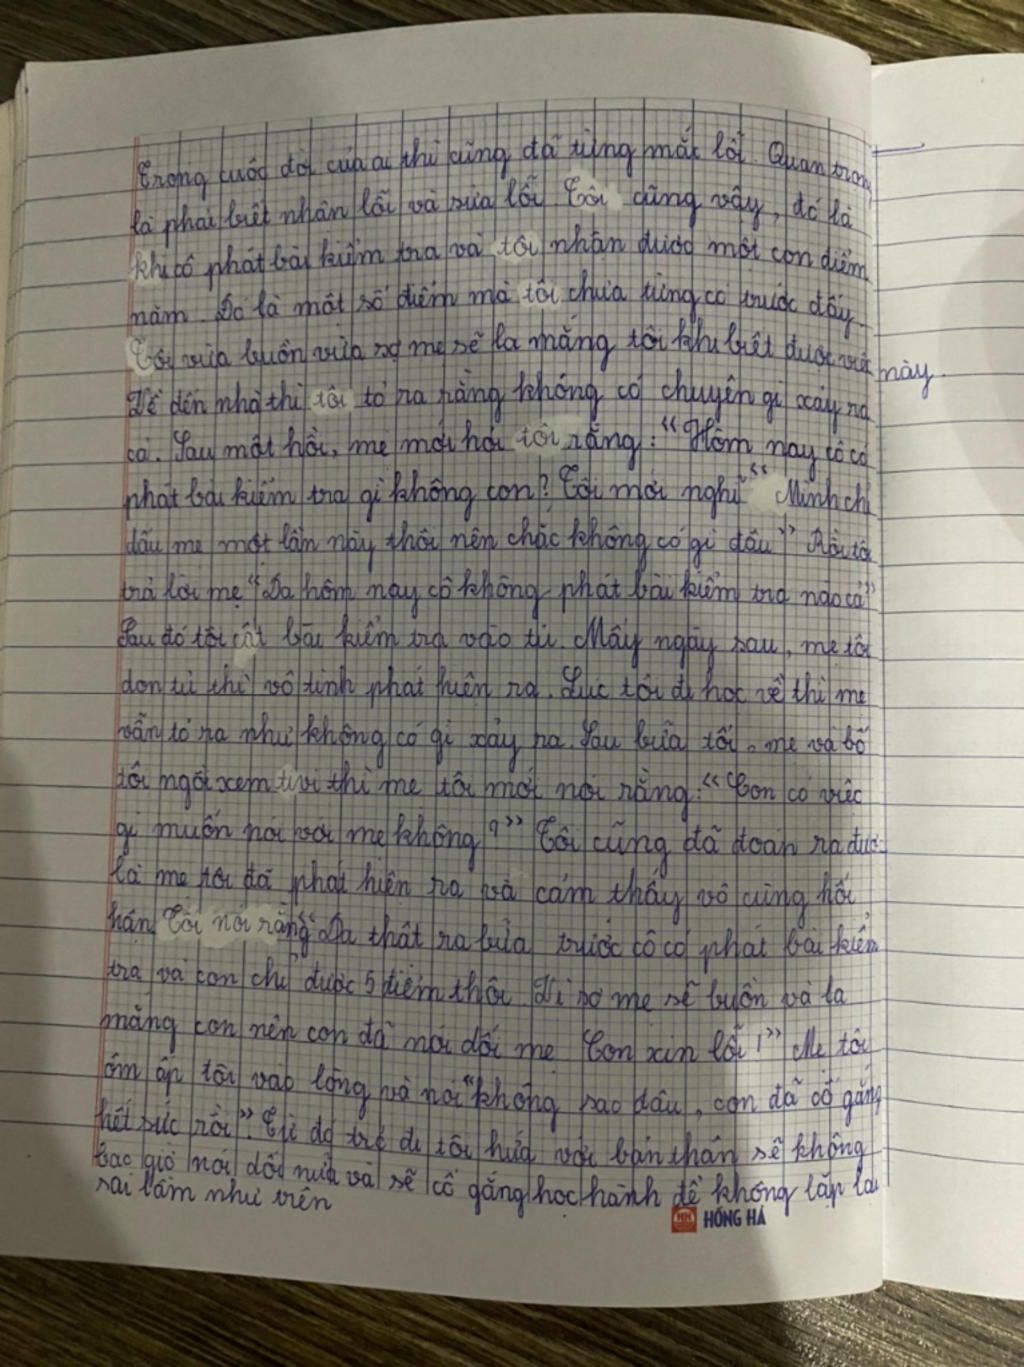 Trong cuộc đời của ai thì cũng đã từng mắc lỗi. Quan trọng
là phải biết nhận lỗi và sửa lỗi. Tôi cũng vậy, đó là
khi cô phát bài kiểm tra và tôi nhận được một con điểm
năm. Đó là một số điểm mà tôi chưa từng có trước đây.
Tôi vừa buồn vừa sợ mẹ sẽ la mắng tôi khi biết được việc này.
Về đến nhà thì tôi tỏ ra rằng không có chuyện gì xảy ra
cả. Sau một hồi, mẹ mới hỏi tôi rằng: "Hôm nay cô có
phát bài kiểm tra gì không con? Tôi mới nghĩ "Mình chỉ
dấu mẹ một lần này thôi nên chắc không có gì đâu" Rồi tôi
trả lời mẹ "Dạ hôm nay cô không phát bài kiểm tra nào cả"
Sau đó tôi cất bài kiểm tra vào tủ. Mấy ngày sau, mẹ tôi
dọn tủ thì vô tình phát hiện ra. Lúc tôi đi học về thì mẹ
vẫn tỏ ra như không có gì xảy ra. Sau bữa tối, mẹ và bố
tôi ngồi xem tivi thì mẹ tôi mới nói rằng: "Con có việc
gì muốn nói với mẹ không?" Tôi cũng đã đoán ra được
là mẹ tôi đã phát hiện ra và cảm thấy vô cùng hối
hận. Tôi nói rằng "Dạ thật ra bữa trước cô có phát bài kiểm
tra và con chỉ được 5 điểm thôi. Vì sợ mẹ sẽ buồn và la
mắng con nên con đã nói dối mẹ. Con xin lỗi!" Mẹ tôi
ôm ấp tôi vào lòng và nói "không sao đâu, con đã cố gắng
hết sức rồi". Từ đó trở đi tôi hứa với bản thân sẽ không
bao giờ nói dối nữa và sẽ cố gắng học hành để không lặp lại
sai lầm như trên
HỒNG HÀ